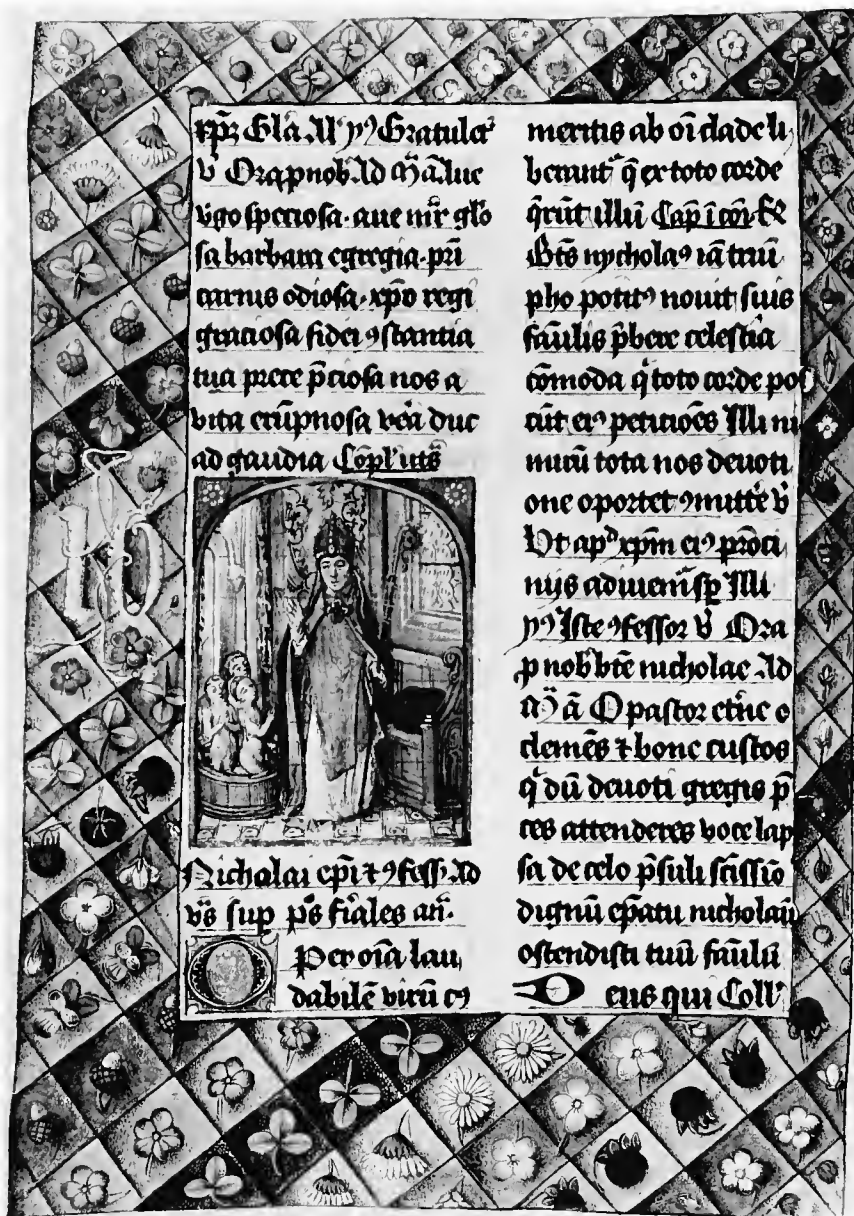 xp̄ɜ Gl̄a Al' p⁹ Gratulet᷑
v̄ Ora p nob̄ Ad m̄ ā Aue
v̾go speciosa · aue mr̄ glo
sa barbara egregia · pri
carnis odiosa · xpo regi
graciosa fidei ꝯstantia
tua prece p̄ciosa nos a
vita erūpnosa vēa duc
ad gaudia Cōpl' vts̄
Nicholai ep̄i ⁊ ꝯfess̄ Ad
v̄s sup p̄s fiales an̄ ·
O Per oīa lau
dabilē virū
meritis ab oī clade li
berant᷑ q̄ ex toto corde
q̄rūt illū Cap̄ ī cōi R̄
Bt̄s nycholaꝰ iā triū
pho potitꝰ nouit suis
fāulis p̄bere celestia
cōmoda q̄ toto corde pos
cūt eiꝰ peticiōes Illi ni
mirū tota nos deuoti
one oportet ꝯmittē v̄
Vt apᵈ xp̄m eiꝰ pr̄oci
nijs adiuuem̄ sp̄ Illi
p⁹ Iste ꝯfessor v̄ Ora
p nob̄ bt̄e nicholae Ad
m̄ ā O pastor et̄ne o
clemēs ⁊ bone custos
q̄ dū deuoti gregis p̄
ces attenderes voce lap
sa de celo p̄suli s̄cissiō
dignū ep̄atu nicholaū
ostendisti tuū fāulū
D eus qui Coll'